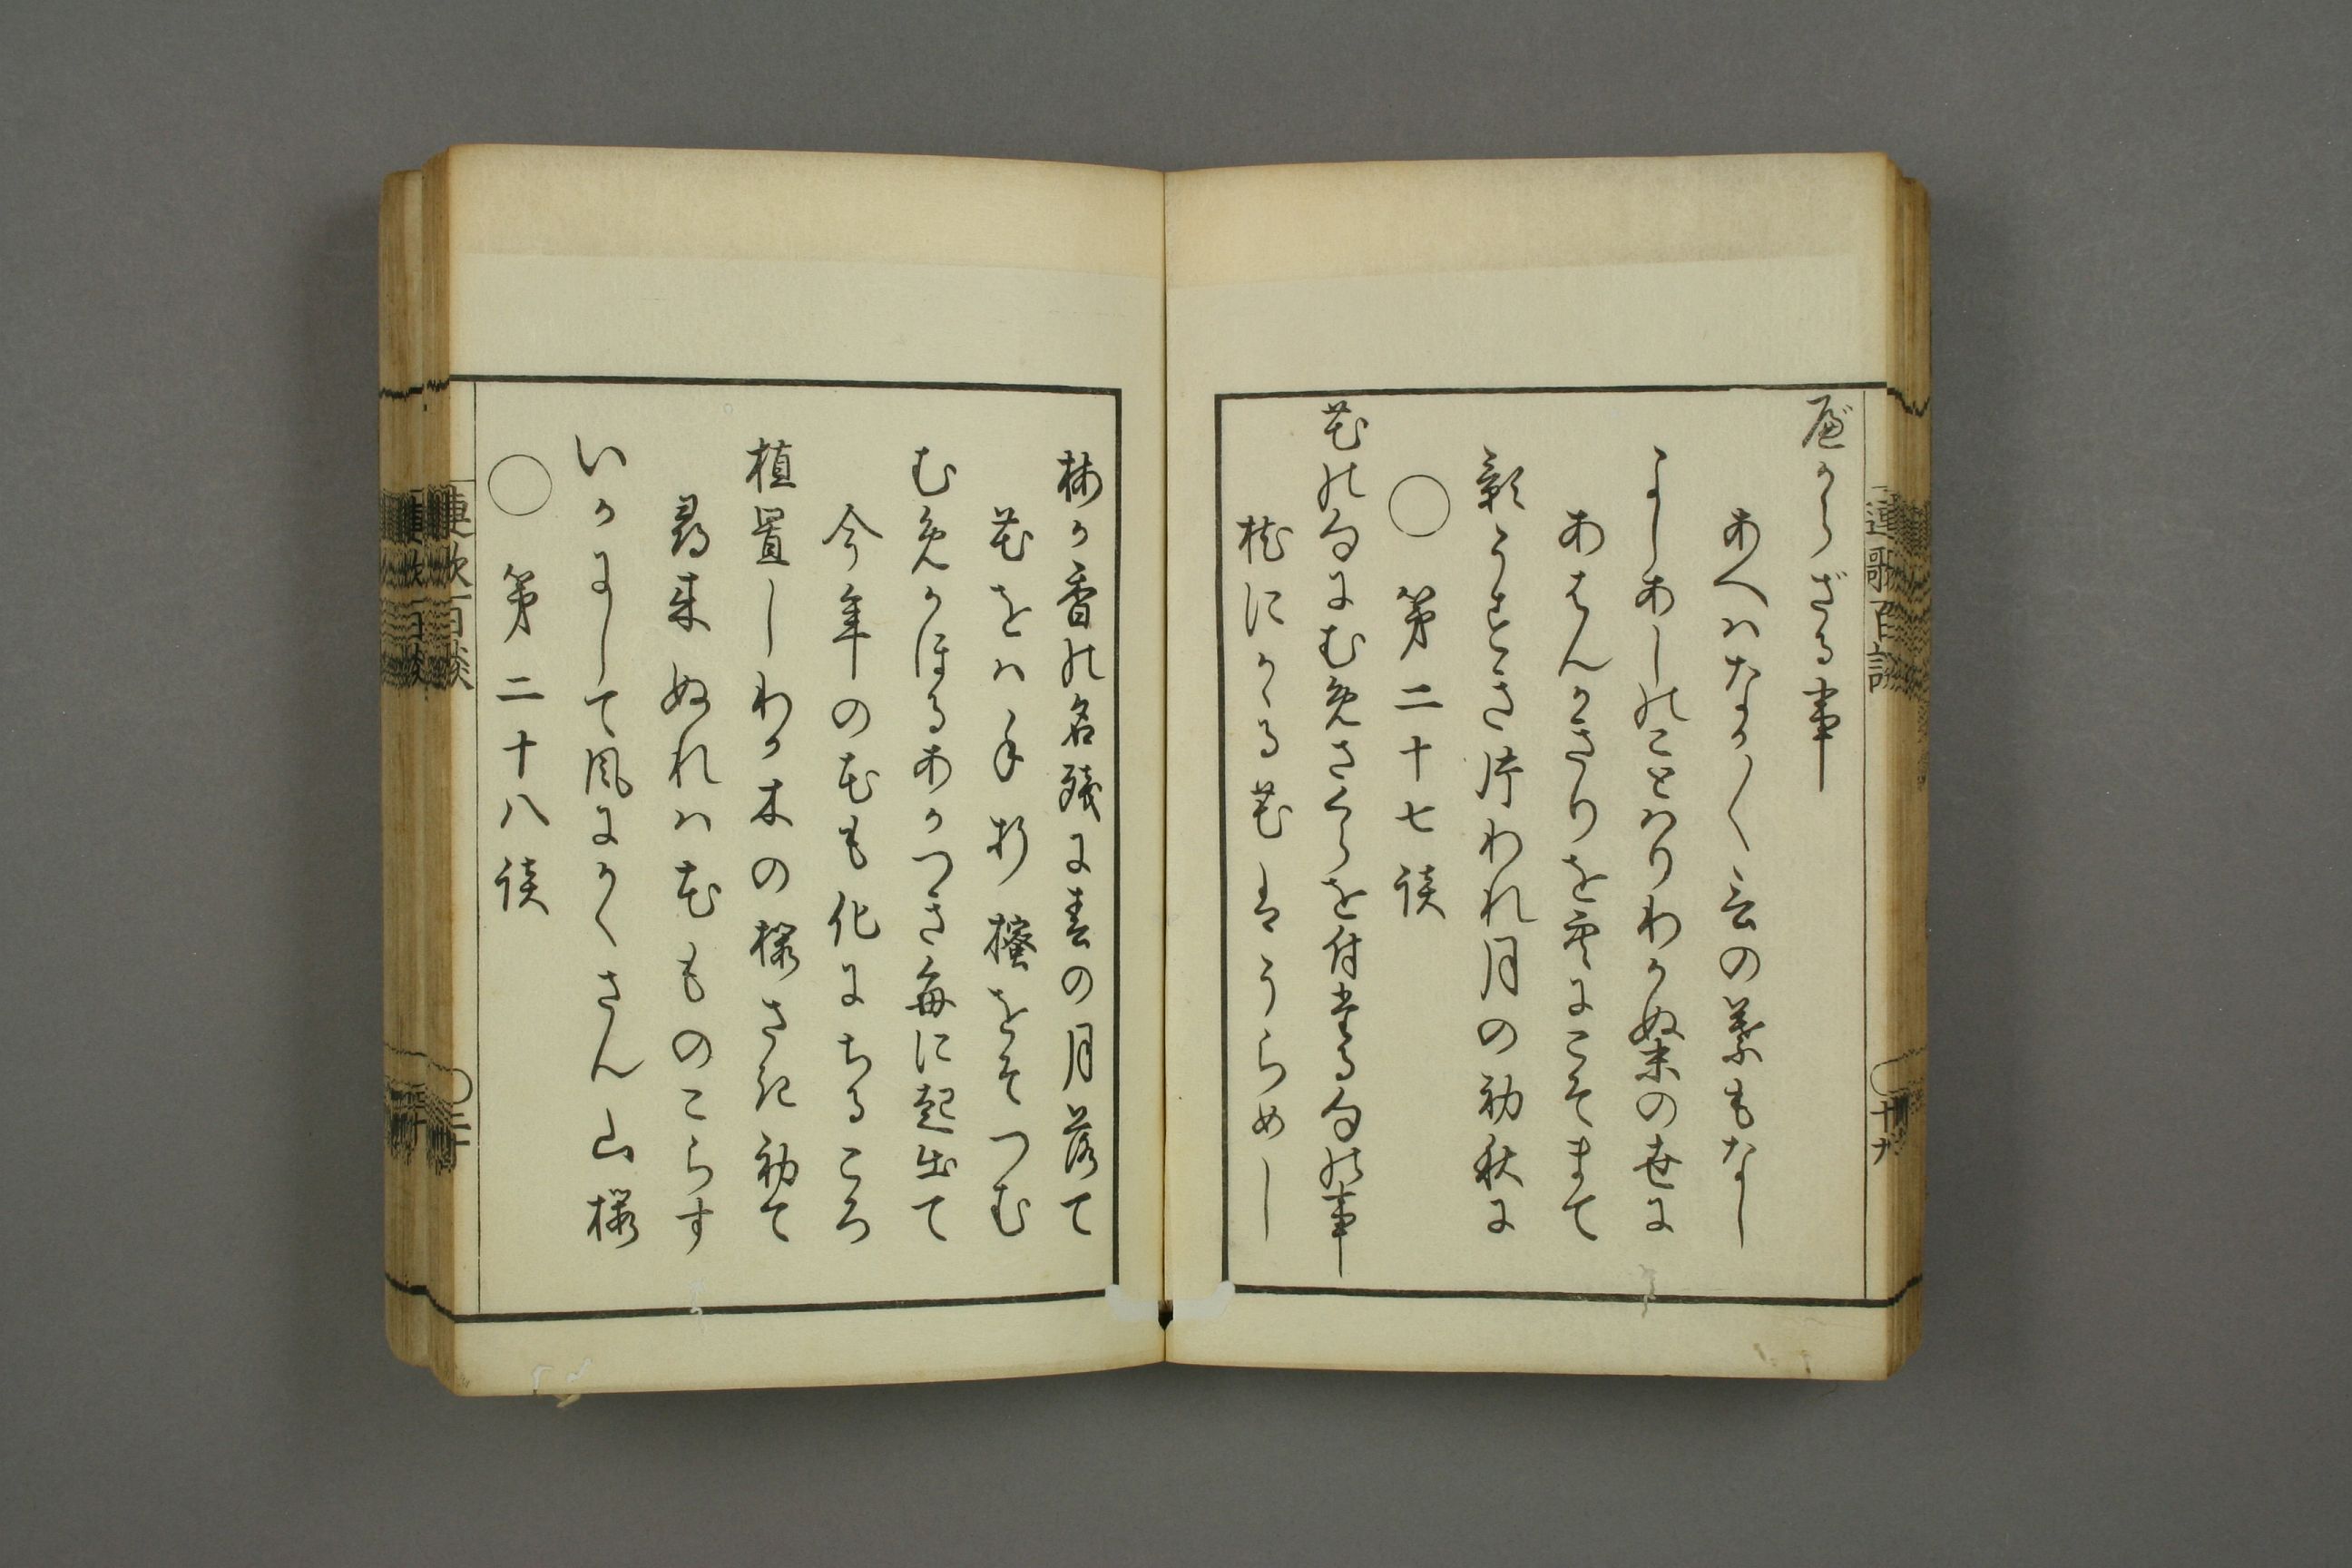 べからざる事
あへハなか〳〵言の葉もなし
よしあしのことハりわかぬ末の世に
あはんかきりを命にこそまて
影うすき片われ月の初秋に
○ 第二十七談
花の句にむめさくらを付る句の事
枕にかゝる花はうらめし
梅か香の名残に春の月落て
花をハ手折梅をそつむ
むめかほるあかつき毎に起出て
今年の花も化にちるころ
植置しわか木の桜さき初て
尋来ぬれハ花ものこらす
いかにして風にかくさん山桜
○ 第二十八談
連歌百談
○十九
連歌百談
○二十